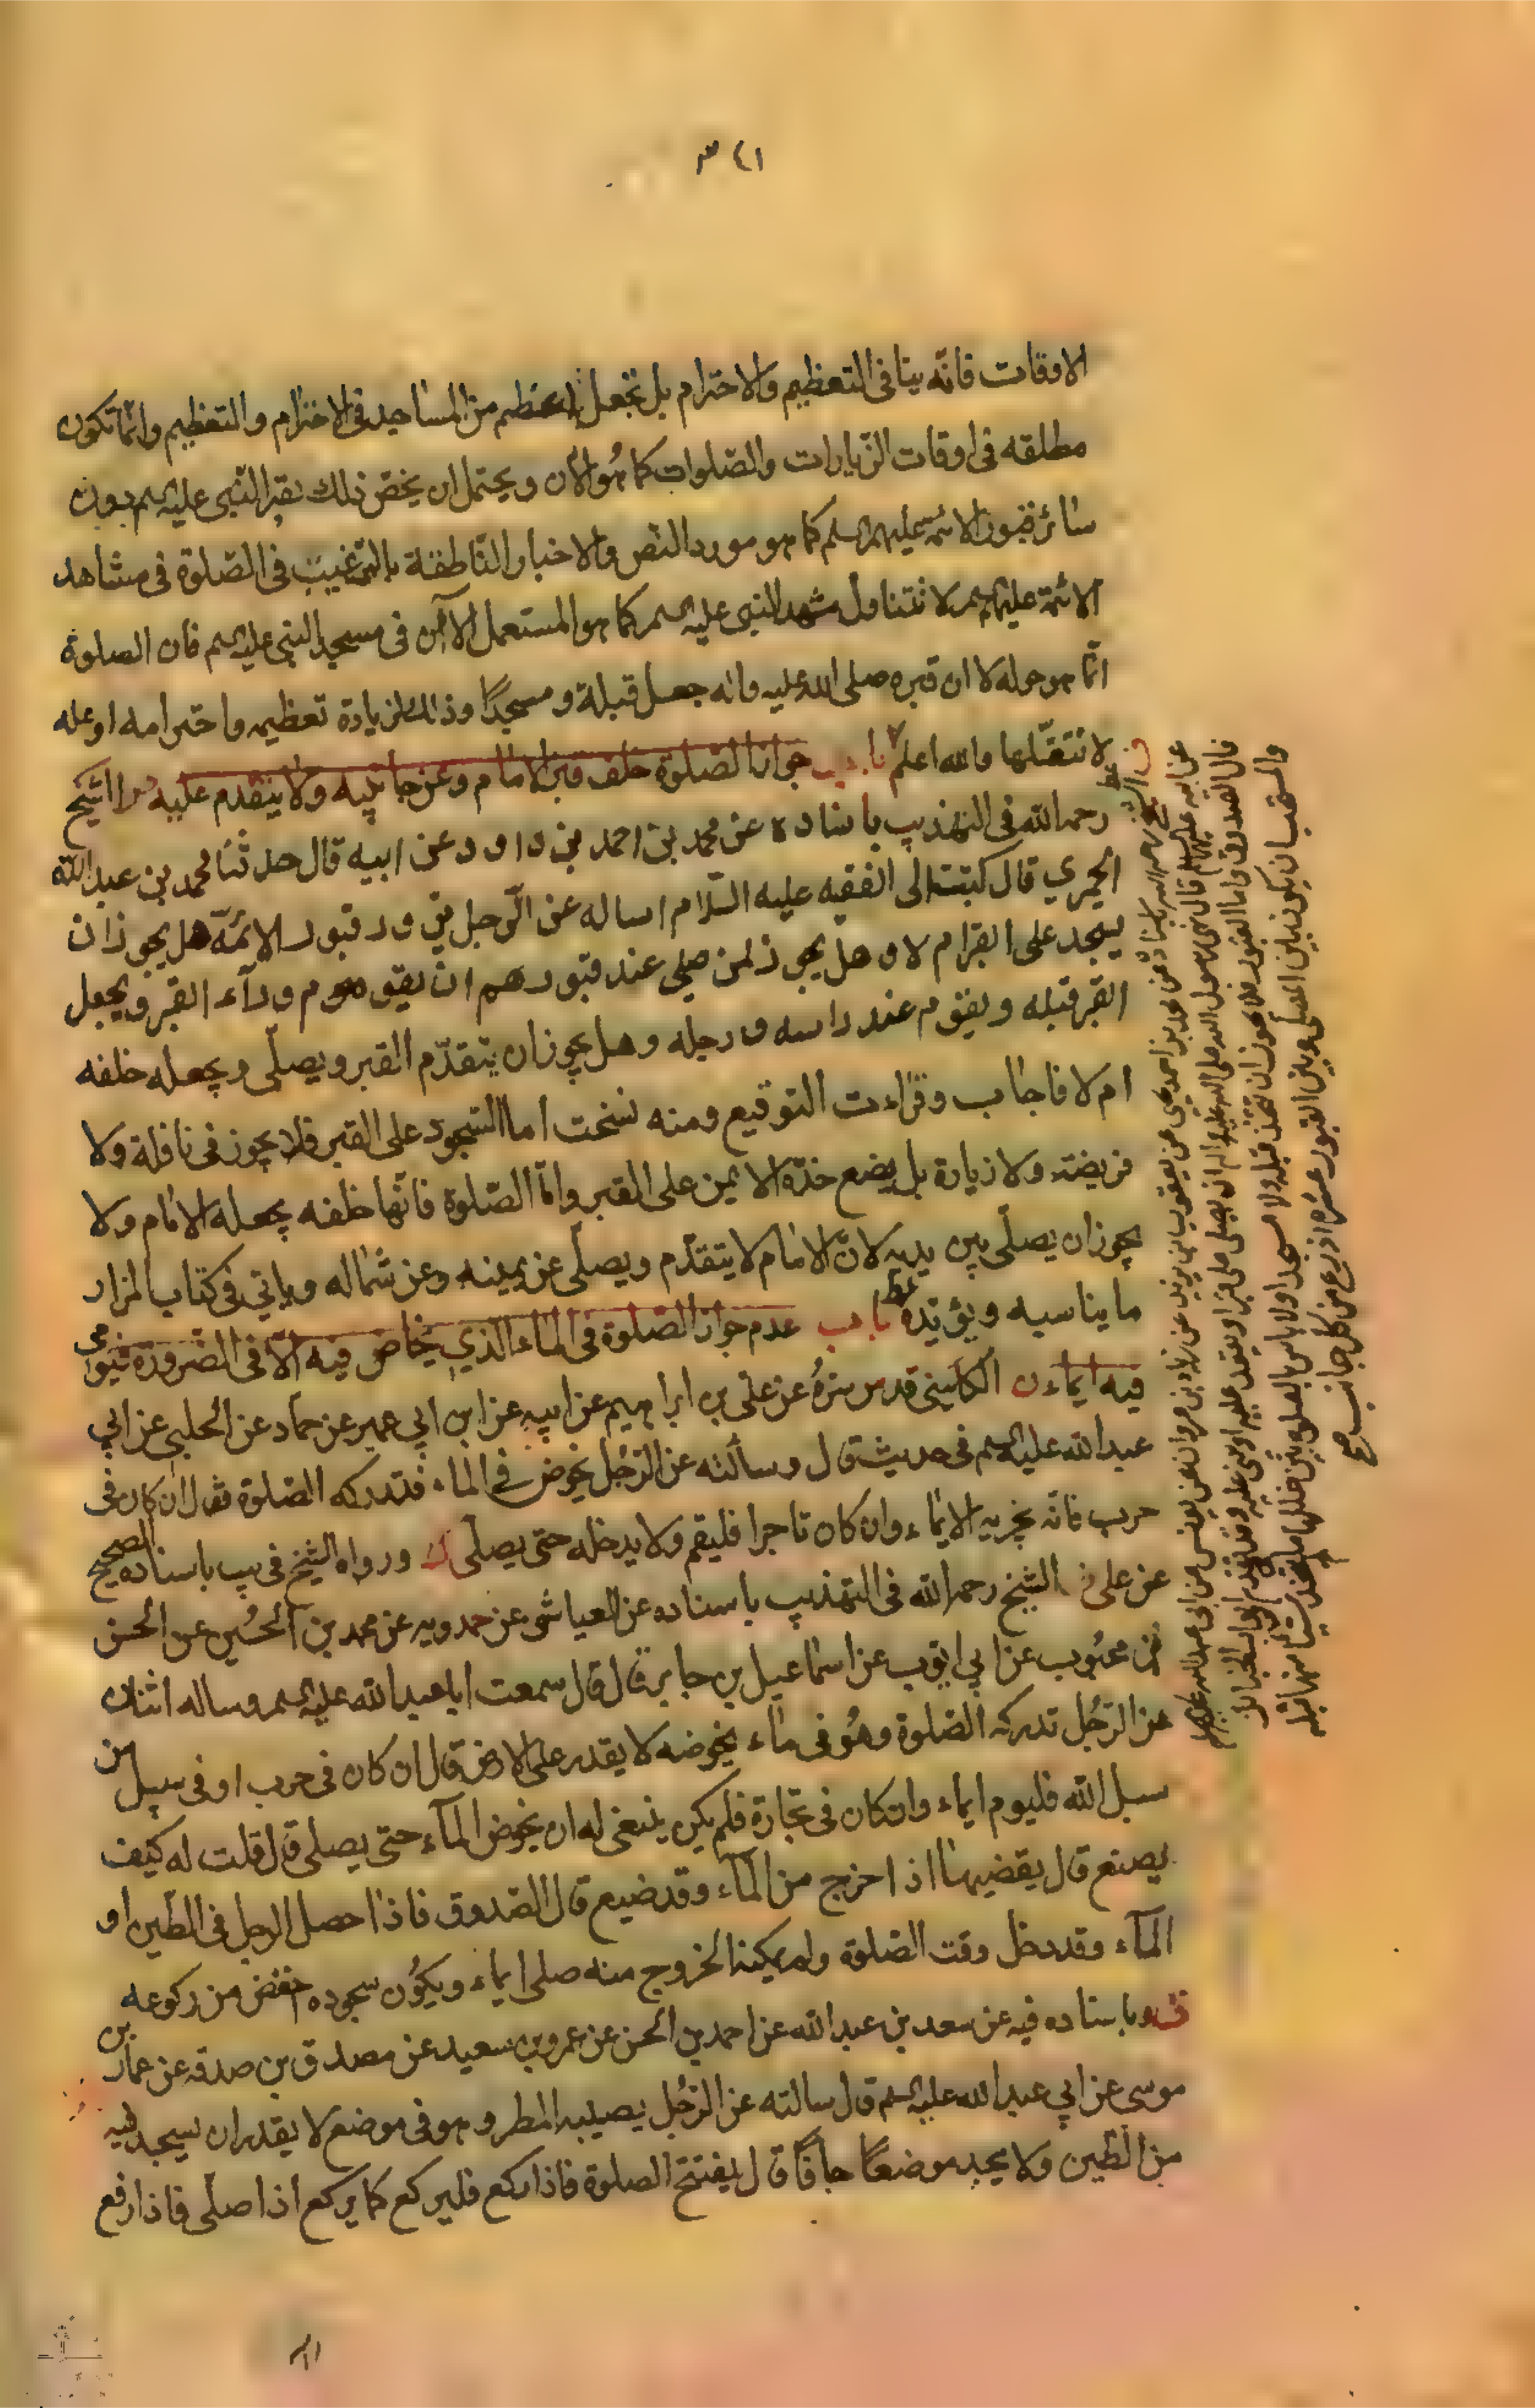 ٣٤١
الاوقات فانّه ينافى التعظيم والاحترام بل تجعل اعظم من المساجد فى الاحترام والتعظيم وانّما تكون
مطلقه فى اوقات الزّيارات والصّلوات كما هُو الآن ويحتمل ان يخصّ ذلك بقبر النّبى عليه السلم بدون
سٰائر قبور الائمه عليهم السلم كما هو مورد النّص والاخبار النّاطقة بالتّرغيب فى الصّلوة فى مشاهد
الائمّة عليهم السلم لا تتناول مشهد النبى عليه السلم كما هو المستعمل الآن فى مسجد النبى عليه السلم فان الصلوة
انّما هو حوله لا ان قبره صلى الله عليه واله جعل قبلة ومسجدًا وذلك لزيادة تعظيمه واحترامه او عله
لا نتعقّلها والله اعلم باب جواز الصّلوة خلف قبر الامٰام وعن جانبيه ولا يتقدم عليه الشّيخ
رحمه الله فى التهذيب باسناده عن محمد بن احمد بن داود عن ابيه قال حدثنا محمد بن عبد الله
الحميري قال كتبت الى الفقيه عليه السّلام اساله عن الرّجل يزور قبور الائمّة هل يجوز ان
يسجد على القبر ام لا وهل يجوز لمن صلى عند قبورهم ان يقوم ورآء القبر ويجعل
القبر قبله ويقوم عند راسه ورجليه وهل يجوز ان يتقدّم القبر ويصلّى ويجعله خلفه
ام لا فاجٰاب وقرأت التوقيع ومنه نسخت اما السّجود على القبر فلا يجوز فى نافلة ولا
فريضة ولا زيارة بل يضع خدّه الايمن على القبر وامّا الصّلوة فانّها خلفه يجعله الامٰام ولا
يجوز ان يصلّى بين يديه لانّ الامٰام لا يتقدّم ويصلّى عن يمينه وعن شمٰاله وياتي فى كتاب المزار
ما يناسبه ويؤيّده باب عدم جواز الصّلوة فى المٰاء الذي يخٰاض فيه الّا فى الضّرورة فيومى
فيه ايمٰاء ن الكلينى قدس سرّهُ عن على بن ابراهيم عن ابيه عن ابن ابي عمير عن حمّاد عن الحلبى عن ابي
عبد الله عليه السلم فى حديث قال وسالته عن الرّجُل يخوض فى المٰاء فتدركه الصّلوة فقال ان كان فى
حرب فانّه يجزيه الايمٰاء وان كان تاجرا فليقم ولا يدخله حتى يصلّى ورواه الشيخ فى يب باسناده الصحيح
عن على الشّيخ رحمه الله فى التهذيب باسناده عن العياشى عن حمدويه عن محمد بن الحُسين عن الحسن
بن محبُوب عن ابي ايّوب عن اسمٰاعيل بن جابر قال قال سمعت ابا عبد الله عليه السلم وساله انسان
عن الرّجُل تدركه الصّلوة وهُو فى مٰاء يخوضه لا يقدر على الارض قال ان كان فى حرب او فى سبيل من
سبل الله فليوم ايماء وان كان فى تجارة فلم يكن ينبغى له ان يخوض المآء حتى يصلى قال قلت له كيف
يصنع قال يقضيهٰا اذا خرج من المآء وقد ضيع قال الصّدوق فاذا حصل الرجل فى الطّين او
المآء وقد دخل وقت الصّلوة ولم يمكنه الخروج منه صلى ايماء ويكون سجوده اخفض من ركوعه
وباسناده فيه عن سعد بن عبد الله عن احمد بن الحسن عن عمرو بن سعيد عن مصدق بن صدقه عن عمار بن
موسى عن ابي عبد الله عليه السلم قال سالته عن الرّجُل يصيبه المطر وهو فى موضع لا يقدر ان يسجد فيه
من الطّين ولا يجد موضعًا جافًّا قال يفتتح الصلوة فاذا ركع فليركع كما يركع اذا صلّى فاذا رفع
رحمه الله باسناده عن محمد بن احمد بن يحيى عن يعقوب بن يزيد عن زياد بن مروان عن يونس عن ابى عبد الله عليه السلم
عن ابيه عليهم السلم قال نهى رسول الله صلى الله عليه واله ان يصلى على قبر او يقعد عليه او يبنى عليه
قال الصدوق واما القبور فلا يجوز ان تتخذ قبلة ولا مسجدا ولا باس بالصلوة بين خللها ما لم يتخذ شيئا منها قبله
والمستحب ان يكون بين المصلى وبين القبور عشره اذرع من كل جانب صح